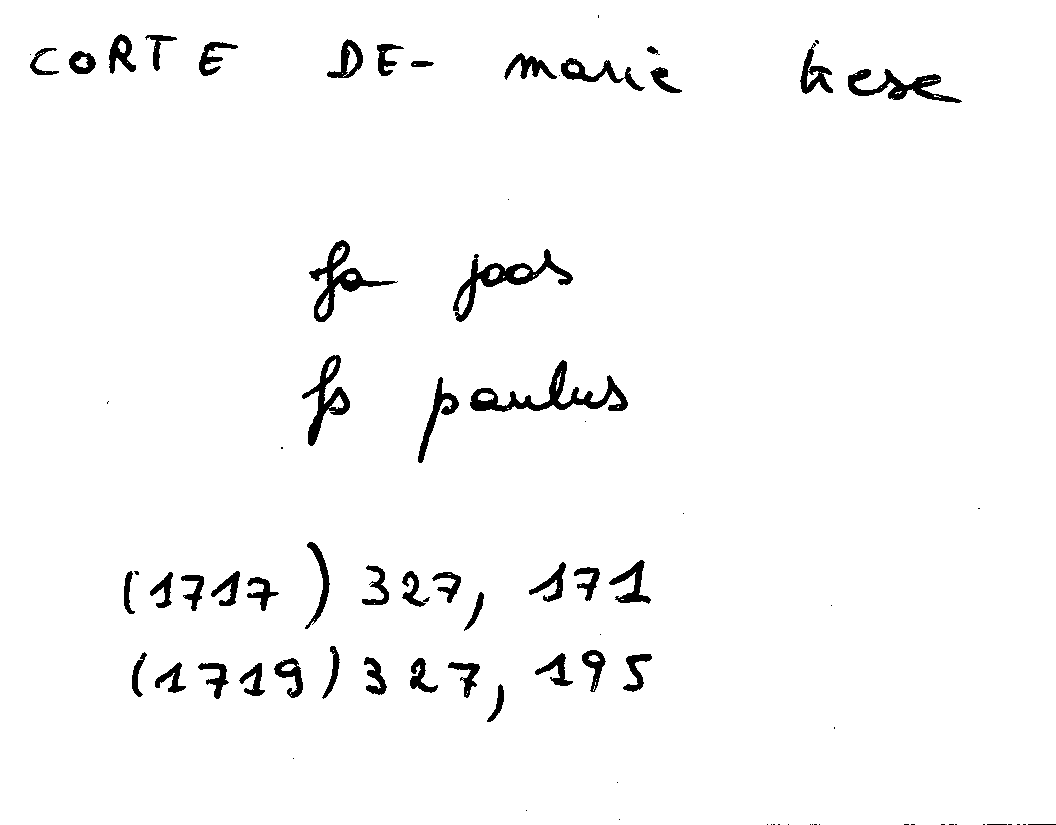 CORTE DE- marie trese
fa joos
fs paulus
(1717) 327, 171
(1719) 327, 195